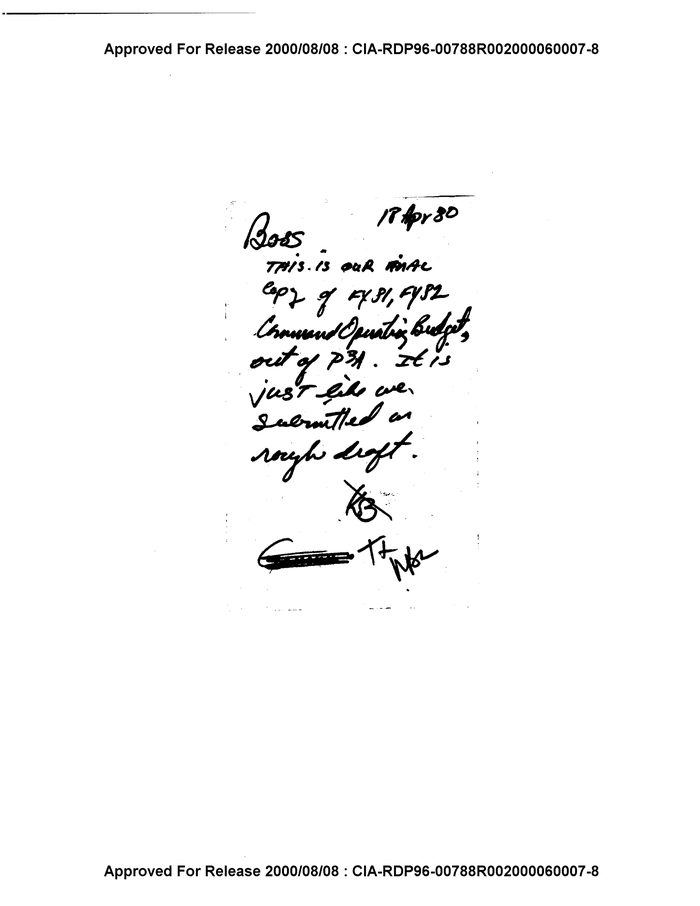 Approved For Release 2000/08/08 : CIA-RDP96-00788R002000060007-8
18 Apr 80
Boss
THIS IS OUR FINAL
Copy of FY81, FY82
Command Operating Budget,
out of P3A. It is
just like we
submitted in
rough draft.
Approved For Release 2000/08/08 : CIA-RDP96-00788R002000060007-8